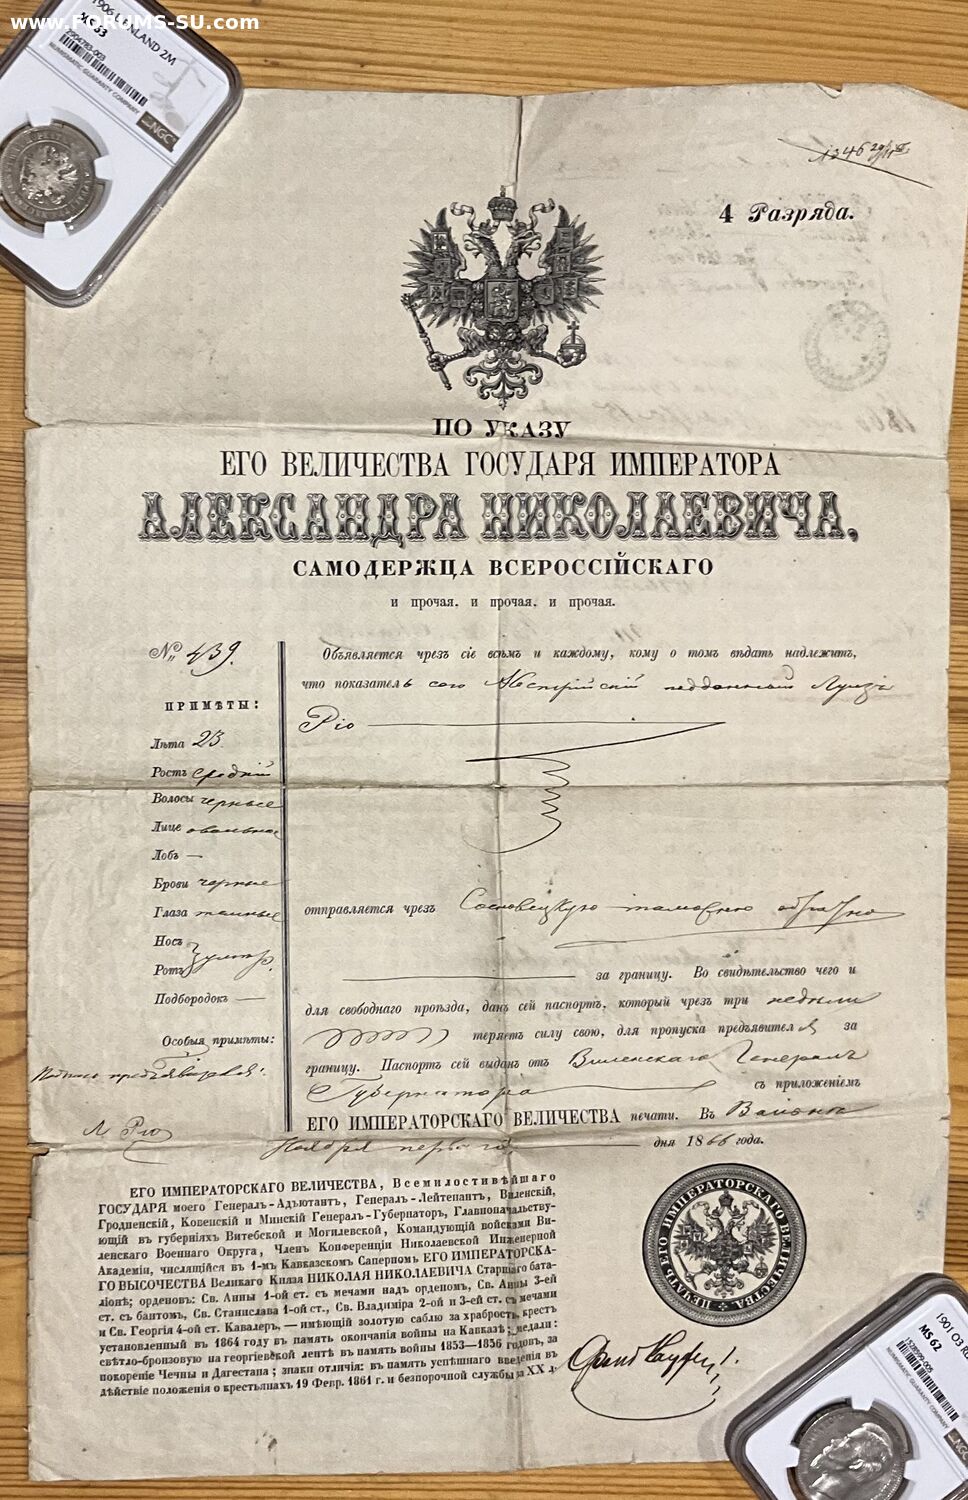 www.FORUMS-SU.com
1906 L FINLAND 2M
MS 63
2904783-003
NUMISMATIC GUARANTY COMPANY
NGC
4 Разряда.
ПО УКАЗУ
ЕГО ВЕЛИЧЕСТВА ГОСУДАРЯ ИМПЕРАТОРА
АЛЕКСАНДРА НИКОЛАЕВИЧА,
САМОДЕРЖЦА ВСЕРОССІЙСКАГО
и прочая, и прочая, и прочая.
№ 439.
Объявляется чрезъ сіе всѣмъ и каждому, кому о томъ вѣдать надлежитъ,
что показатель сего Австрійскій подданный Луизъ
Ріо
ПРИМѢТЫ:
Лѣта 23.
Ростъ средній
Волосы черные
Лице овальное
Лобъ —
Брови черные
Глаза темные
Носъ
Ротъ
Подбородокъ —
Особыя примѣты:
Подпись предъявителя:
Л Ріо
отправляется чрезъ Сосновецкую таможню обратно
за границу. Во свидѣтельство чего и
для свободнаго проѣзда, данъ сей паспортъ, который чрезъ три недѣли
теряетъ силу свою, для пропуска предъявителя за
границу. Паспортъ сей выданъ отъ Виленскаго Генералъ
Губернатора съ приложеніемъ
ЕГО ИМПЕРАТОРСКАГО ВЕЛИЧЕСТВА печати. Въ Вильнѣ
Ноября перваго дня 1866 года.
ЕГО ИМПЕРАТОРСКАГО ВЕЛИЧЕСТВА, Всемилостивѣйшаго
ГОСУДАРЯ моего Генералъ-Адъютантъ, Генералъ-Лейтенантъ, Виленскій,
Гродненскій, Ковенскій и Минскій Генералъ-Губернаторъ, Главноначальству-
ющій въ губерніяхъ Витебской и Могилевской, Командующій войсками Ви-
ленскаго Военнаго Округа, Членъ Конференціи Николаевской Инженерной
Академіи, числящійся въ 1-мъ Кавказскомъ Саперномъ ЕГО ИМПЕРАТОРСКА-
ГО ВЫСОЧЕСТВА Великаго Князя НИКОЛАЯ НИКОЛАЕВИЧА Старшаго бата-
ліонѣ; орденовъ: Св. Анны 1-ой ст. съ мечами надъ орденомъ, Св. Анны 3-ей
ст. съ бантомъ, Св. Станислава 1-ой ст., Св. Владиміра 2-ой и 3-ей ст. съ мечами
и Св. Георгія 4-ой ст. Кавалеръ, — имѣющій золотую саблю за храбрость, крестъ
установленный въ 1864 году въ память окончанія войны на Кавказѣ; медали:
свѣтло-бронзовую на георгіевской лентѣ въ память войны 1853—1856 годовъ, за
покореніе Чечны и Дагестана; знаки отличія: въ память успѣшнаго введенія въ
дѣйствіе положенія о крестьянахъ 19 Февр. 1861 г. и безпорочной службы за XX л.
ПЕЧАТЬ ЕГО ИМПЕРАТОРСКАГО ВЕЛИЧЕСТВА.
1901 ФЗ
MS 62
1528599-005
NUMISMATIC GUARANTY COMPANY
NGC